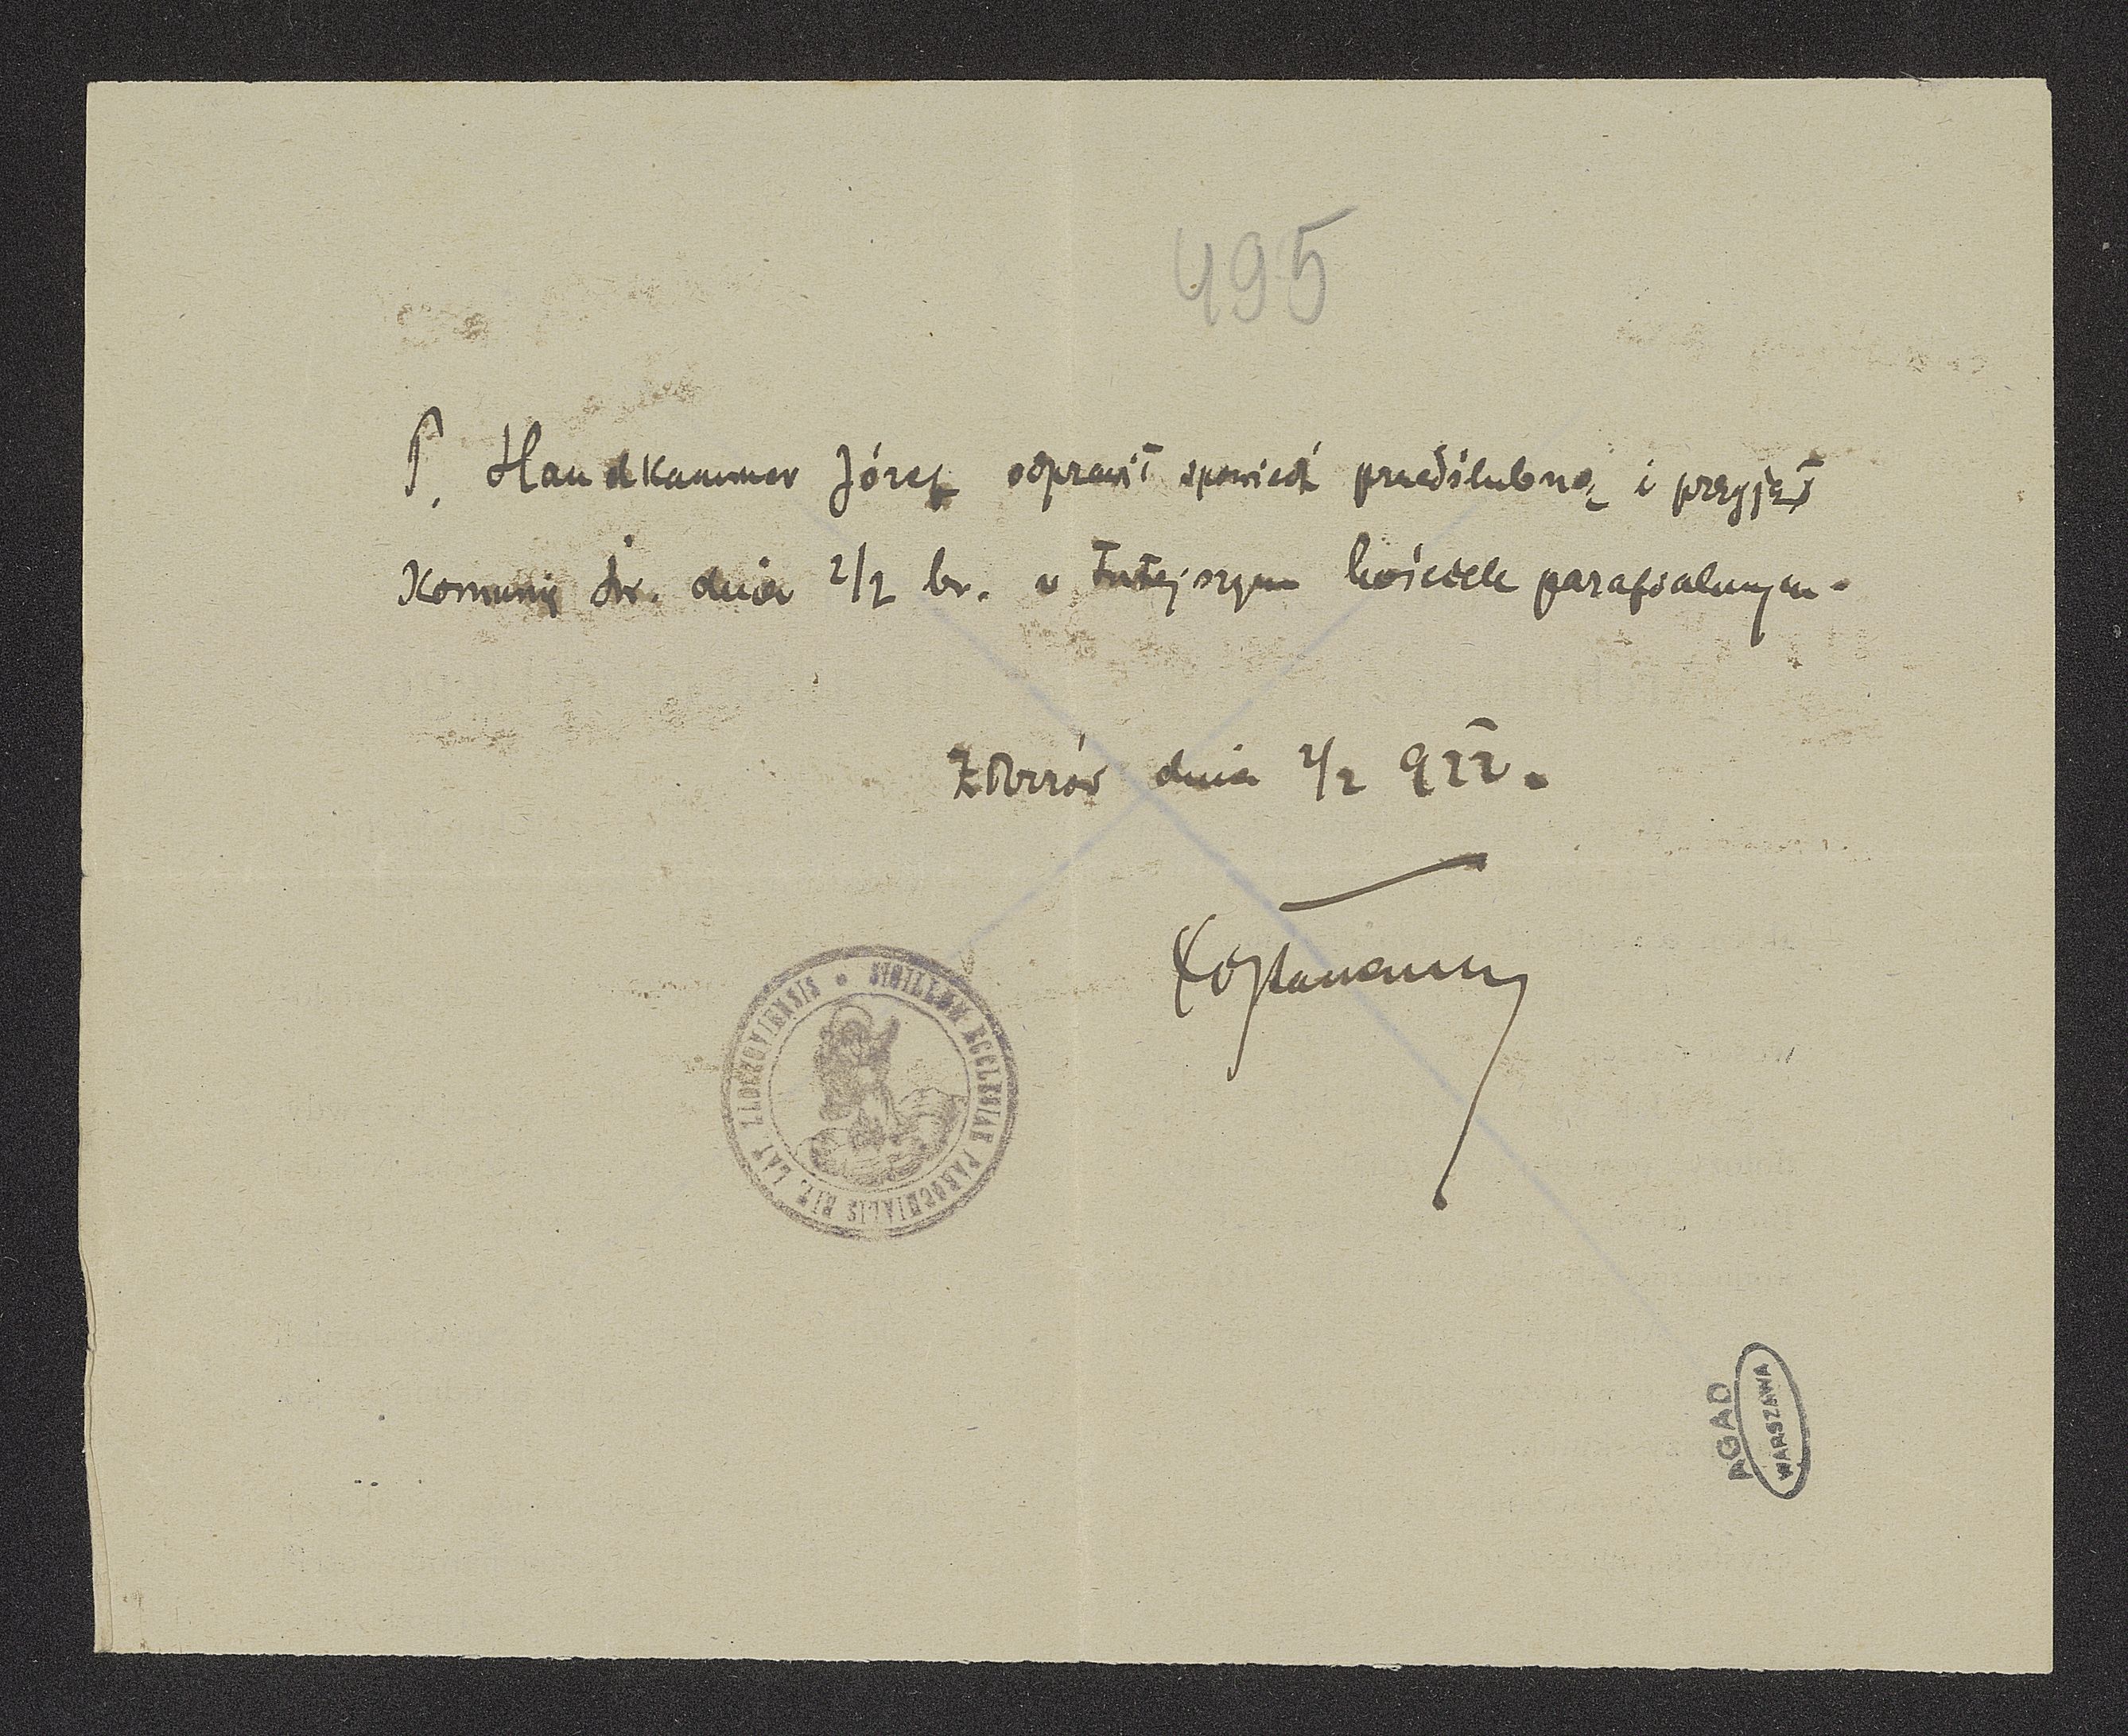 495
P. Handkammer Józef odprawił spowiedź przedślubną i przyjął
Komunię św. dnia 2/2 br. w tutejszym kościele parafialnym.
Zborów dnia 2/2 922.
SIGILLUM ECCLESIAE PAROCHIALIS RIT. LAT. ZBOROVIENSIS
AGAD
WARSZAWA